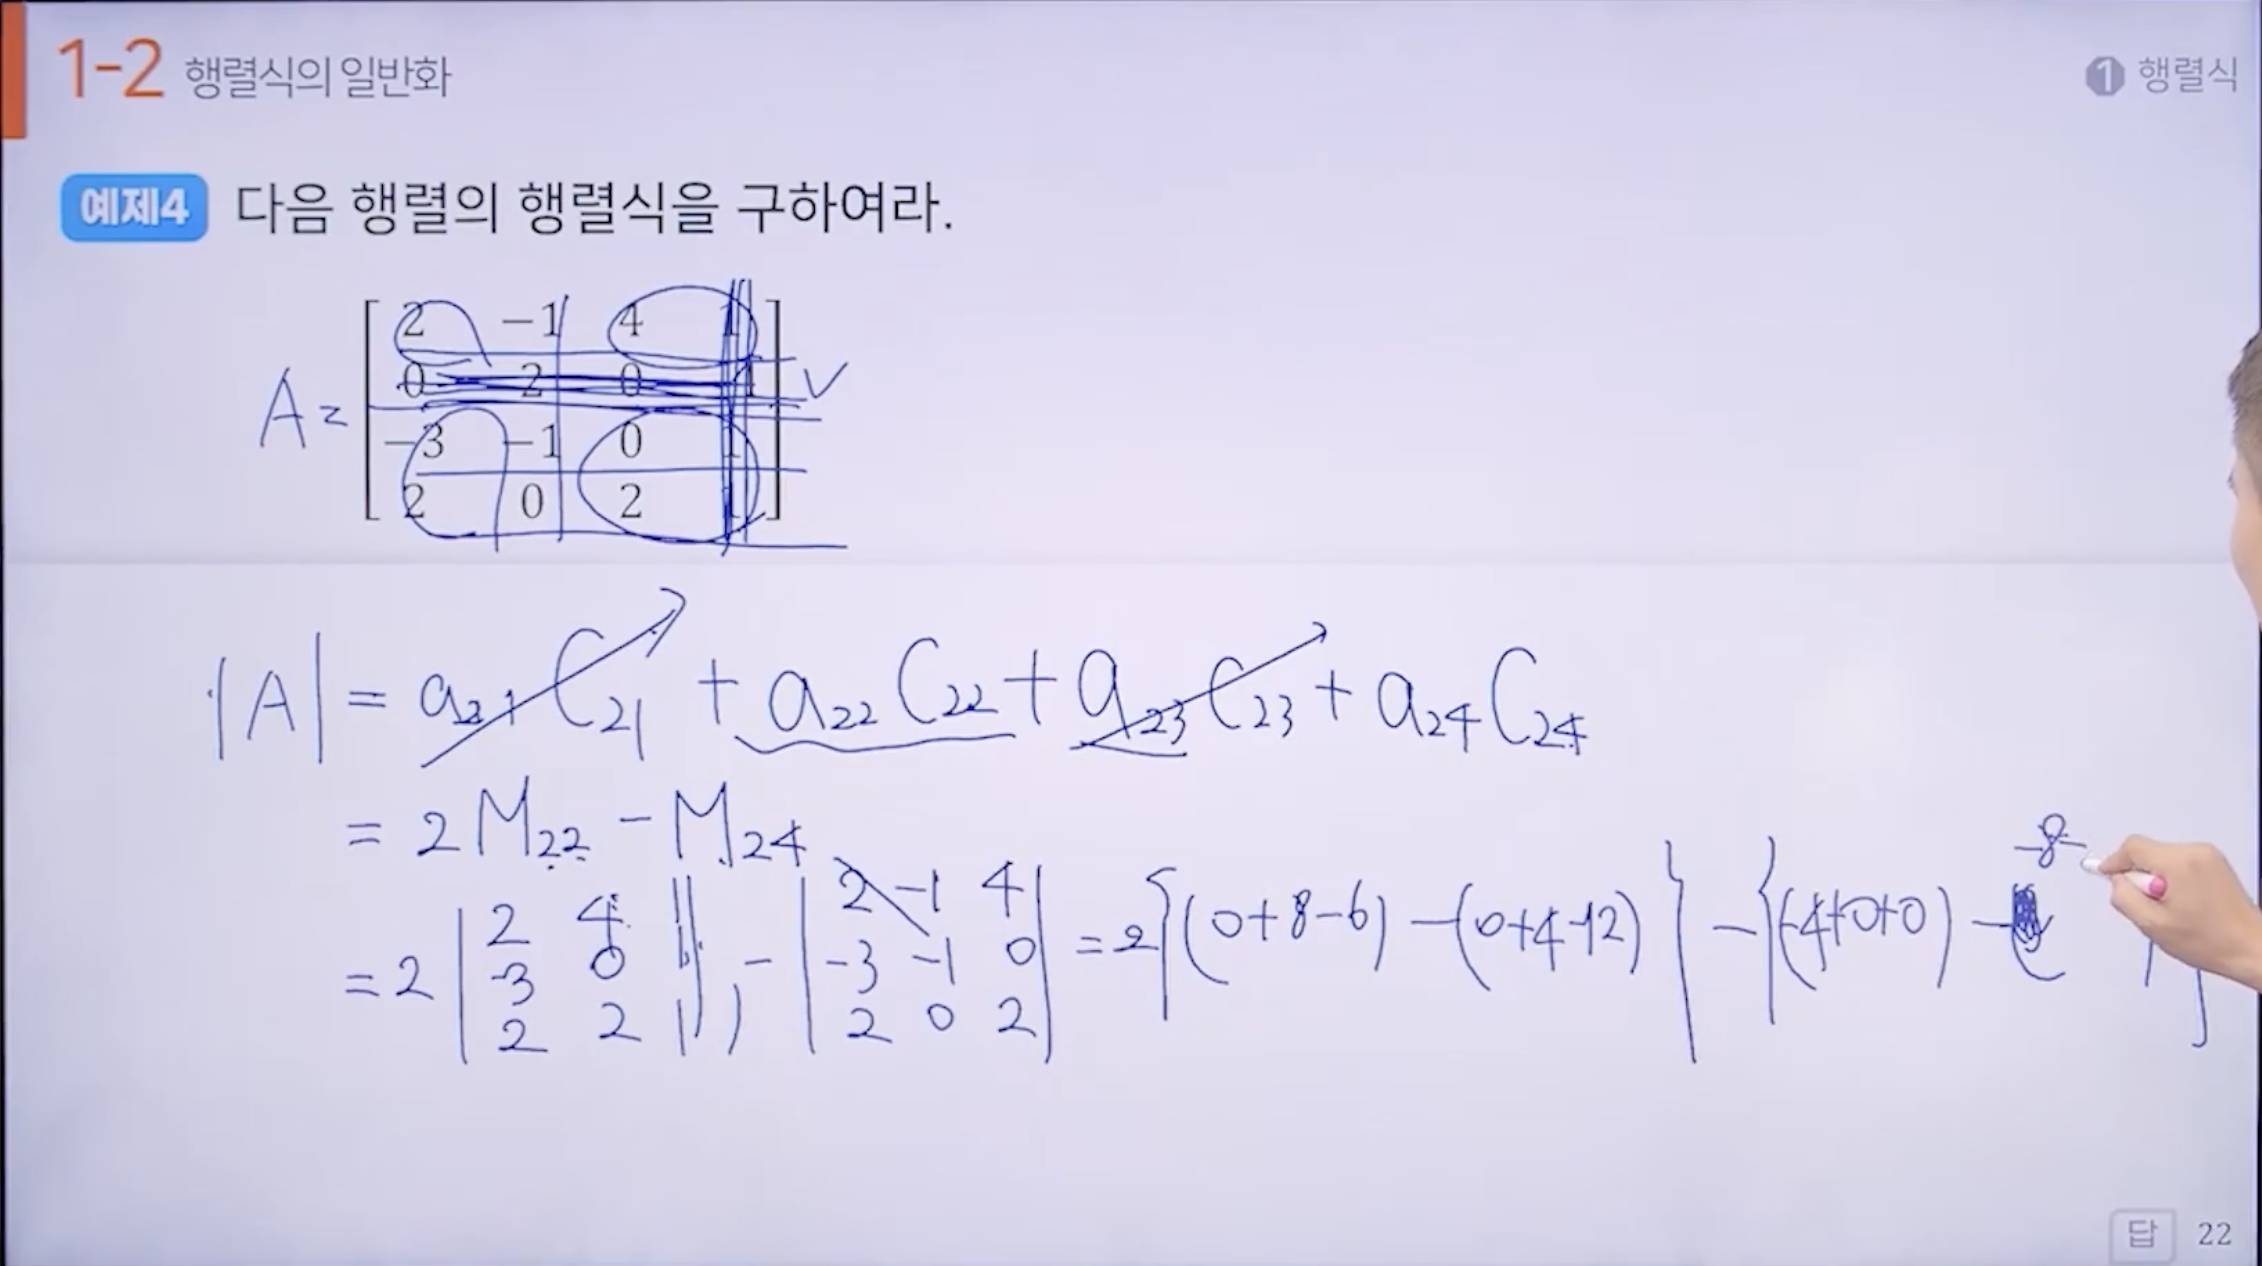 1-2 행렬식의 일반화
1 행렬식
예제4 다음 행렬의 행렬식을 구하여라.
2 -1 4 1
A= 0 2 0 1
-3 -1 0 1
2 0 2 1
|A| = a21 C21 + a22 C22 + a23 C23 + a24 C24
= 2 M22 - M24
2 4 1 2 -1 4
=2 -3 0 1 - -3 -1 0 =2{(0+8-6)-(0+4-12)}-{(-4+0+0)-( -8
2 2 1 2 0 2
답 22